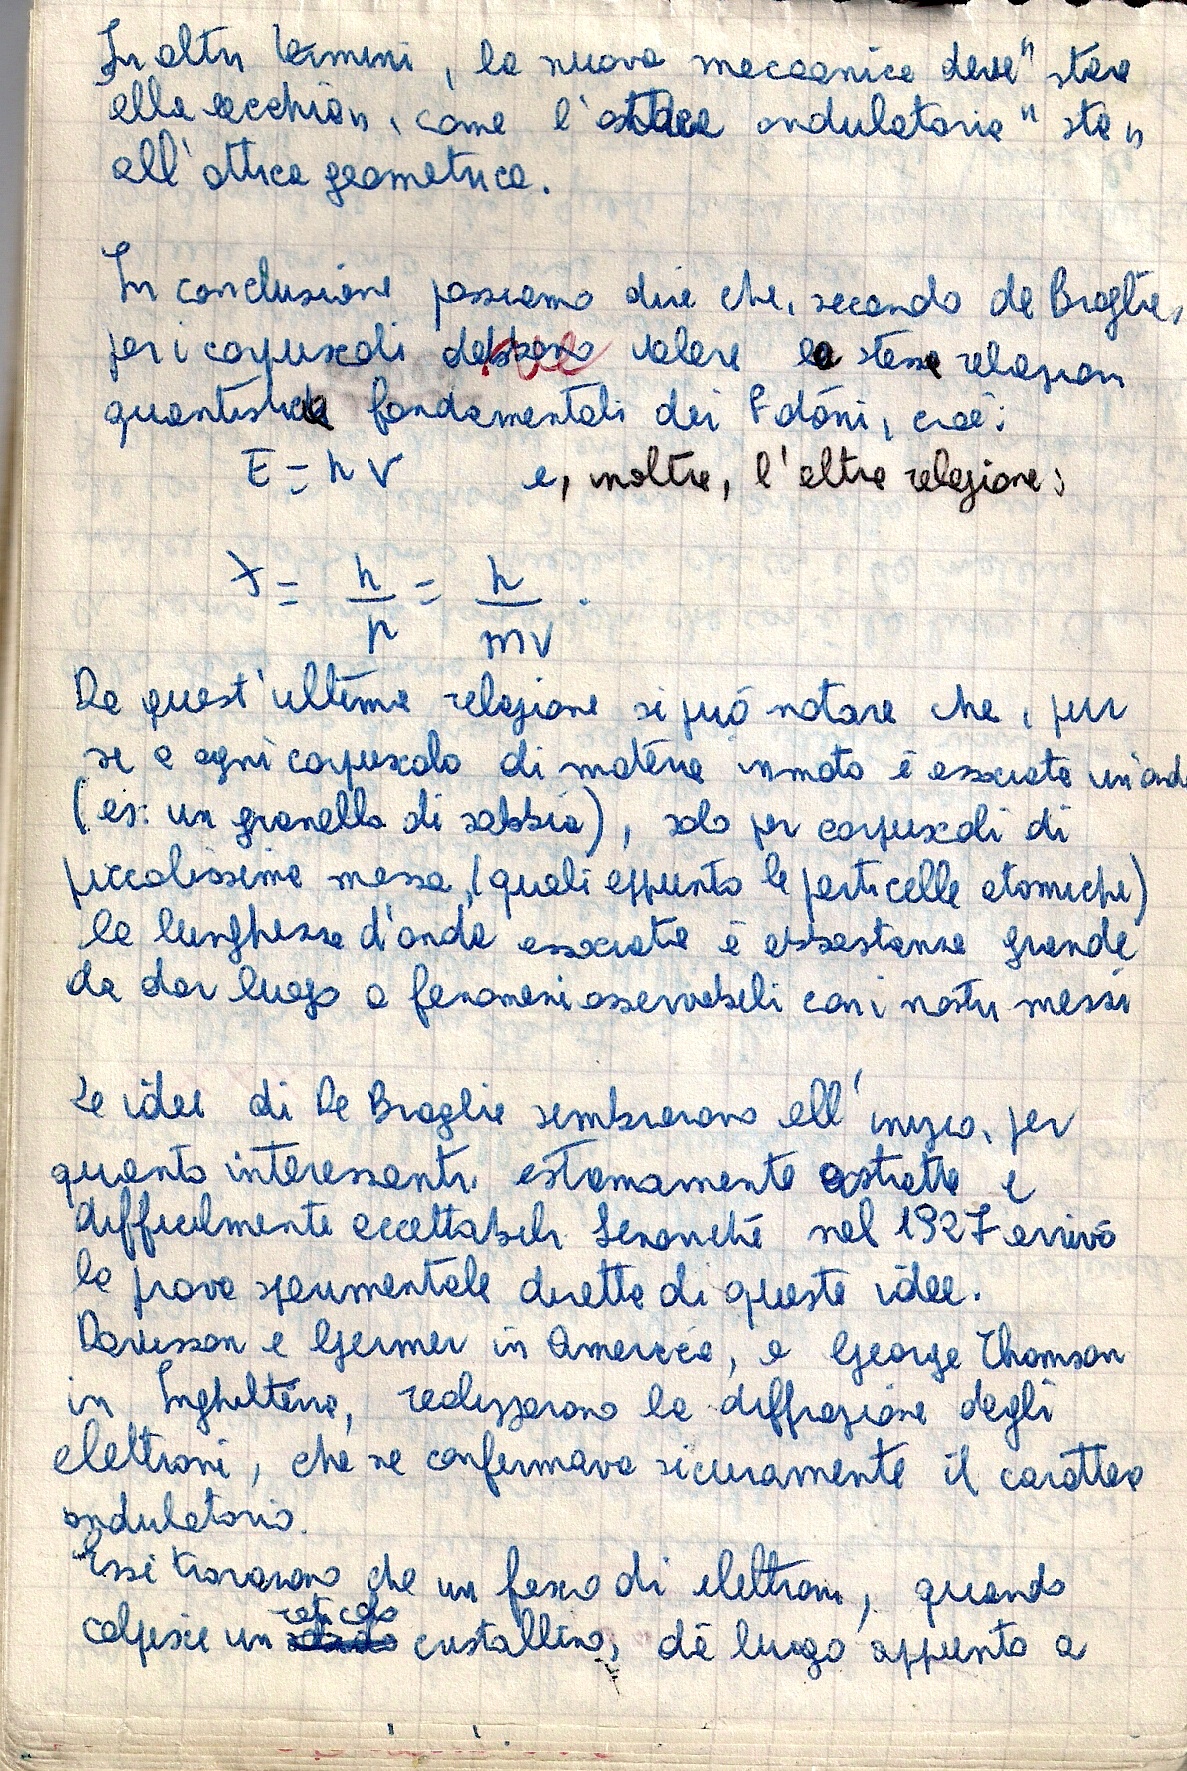 In altri termini, la nuova meccanica deve "stare
alla vecchia", come l'ottica ondulatoria "sta"
all'ottica geometrica.
In conclusione possiamo dire che, secondo de Broglie,
per i corpuscoli debbono valere le stesse relazioni
quantistiche fondamentali dei fotoni, cioè:
E = h ν e, inoltre, l'altra relazione:
λ = h/p = h/mv.
Da quest'ultima relazione si può notare che, pur
se a ogni corpuscolo di materia in moto è associata un'onda
(es: un granello di sabbia), solo per corpuscoli di
piccolissima massa, (quali appunto le particelle atomiche)
la lunghezza d'onda associata è abbastanza grande
da dar luogo a fenomeni osservabili con i nostri mezzi
Le idee di De Broglie sembrarono all'inizio, per
quanto interessanti, estremamente astratte e
difficilmente accettabili. Senonché nel 1927 arrivò
la prova sperimentale diretta di queste idee.
Davisson e Germer in America, e George Thomson
in Inghilterra, realizzarono la diffrazione degli
elettroni, che ne confermava sicuramente il carattere
ondulatorio.
Essi trovarono che un fascio di elettroni, quando
colpisce un reticolo cristallino, dà luogo appunto a